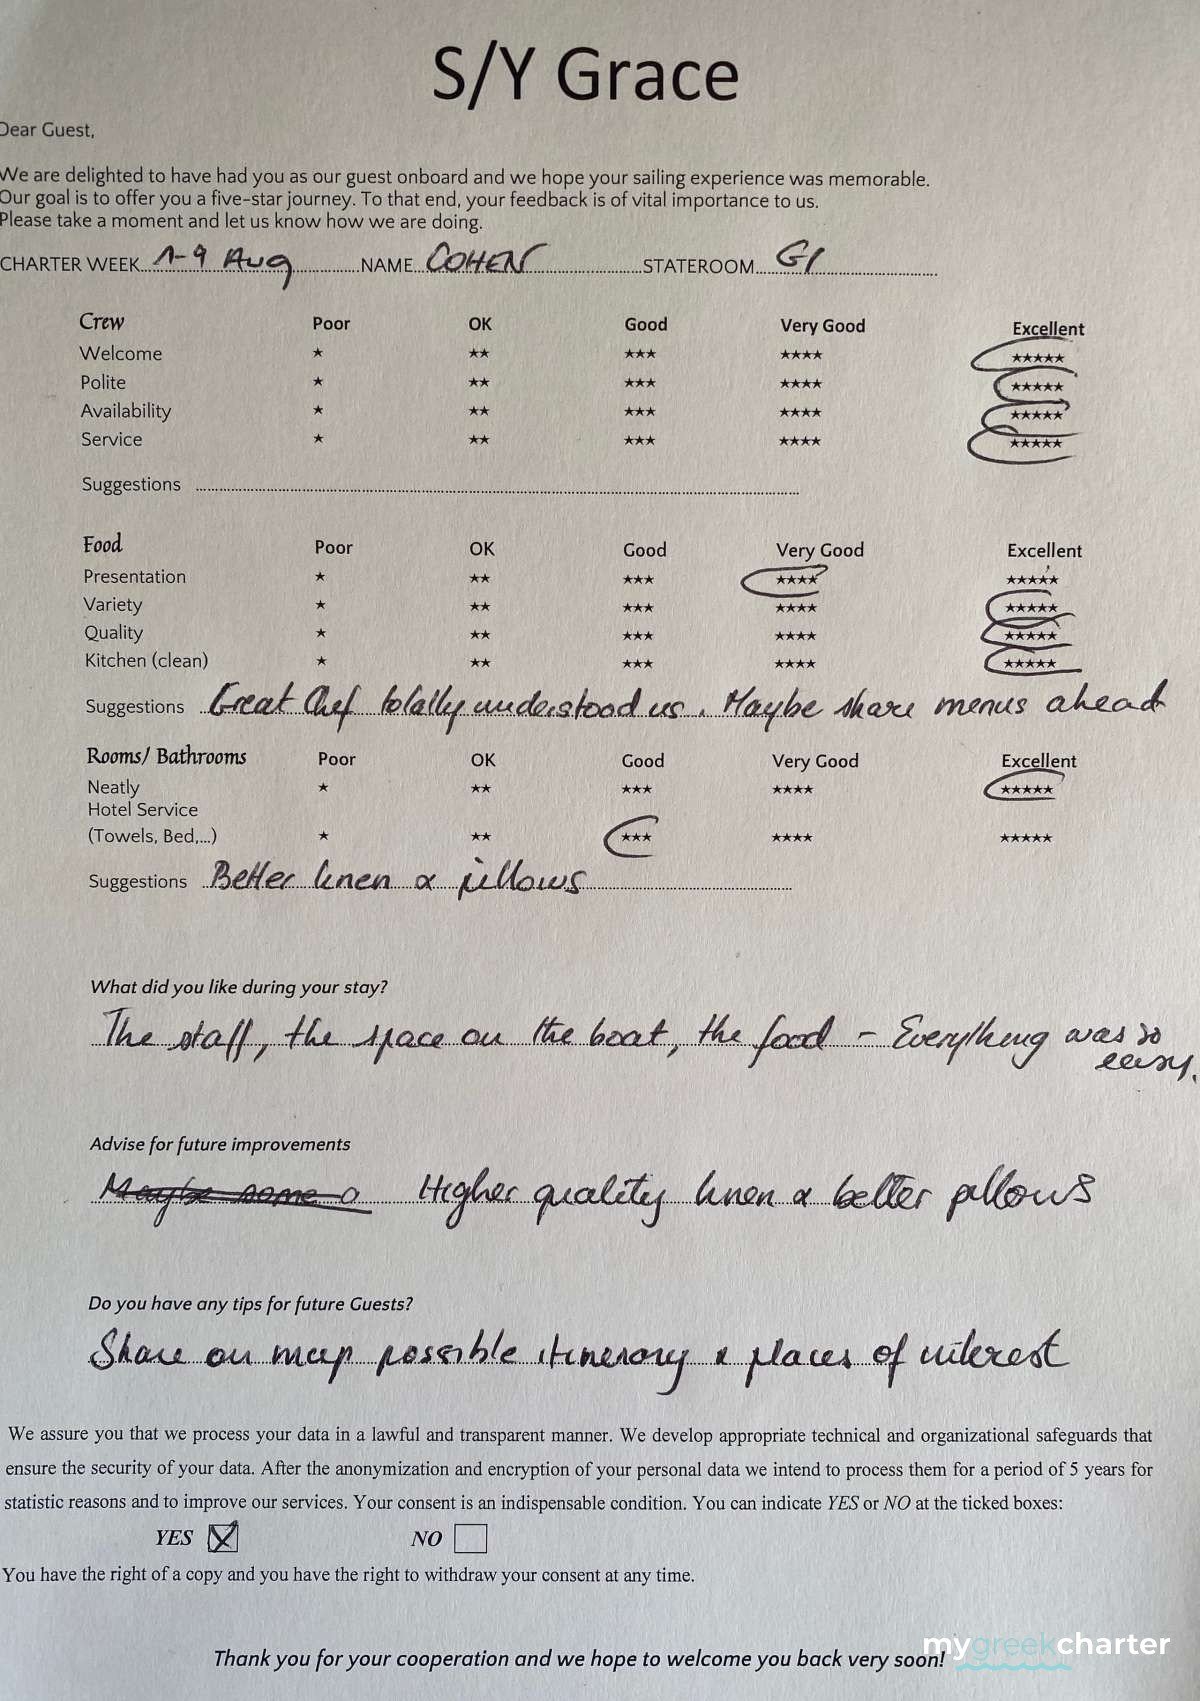 S/Y Grace
Dear Guest,
We are delighted to have had you as our guest onboard and we hope your sailing experience was memorable.
Our goal is to offer you a five-star journey. To that end, your feedback is of vital importance to us.
Please take a moment and let us know how we are doing.
CHARTER WEEK 1-9 Aug NAME COHEN STATEROOM G1
Crew Poor OK Good Very Good Excellent
Welcome ★ ★★ ★★★ ★★★★ ★★★★★
Polite ★ ★★ ★★★ ★★★★ ★★★★★
Availability ★ ★★ ★★★ ★★★★ ★★★★★
Service ★ ★★ ★★★ ★★★★ ★★★★★
Suggestions
Food Poor OK Good Very Good Excellent
Presentation ★ ★★ ★★★ ★★★★ ★★★★★
Variety ★ ★★ ★★★ ★★★★ ★★★★★
Quality ★ ★★ ★★★ ★★★★ ★★★★★
Kitchen (clean) ★ ★★ ★★★ ★★★★ ★★★★★
Suggestions Great Chef totally understood us. Maybe share menus ahead
Rooms/ Bathrooms Poor OK Good Very Good Excellent
Neatly ★ ★★ ★★★ ★★★★ ★★★★★
Hotel Service
(Towels, Bed,...) ★ ★★ ★★★ ★★★★ ★★★★★
Suggestions Better linen & pillows
What did you like during your stay?
The staff, the space on the boat, the food - Everything was so
easy.
Advise for future improvements
Maybe some Higher quality linen & better pillows
Do you have any tips for future Guests?
Share on map possible itinerary & places of interest
We assure you that we process your data in a lawful and transparent manner. We develop appropriate technical and organizational safeguards that
ensure the security of your data. After the anonymization and encryption of your personal data we intend to process them for a period of 5 years for
statistic reasons and to improve our services. Your consent is an indispensable condition. You can indicate YES or NO at the ticked boxes:
YES ☒ NO ☐
You have the right of a copy and you have the right to withdraw your consent at any time.
mygreekcharter
Thank you for your cooperation and we hope to welcome you back very soon!